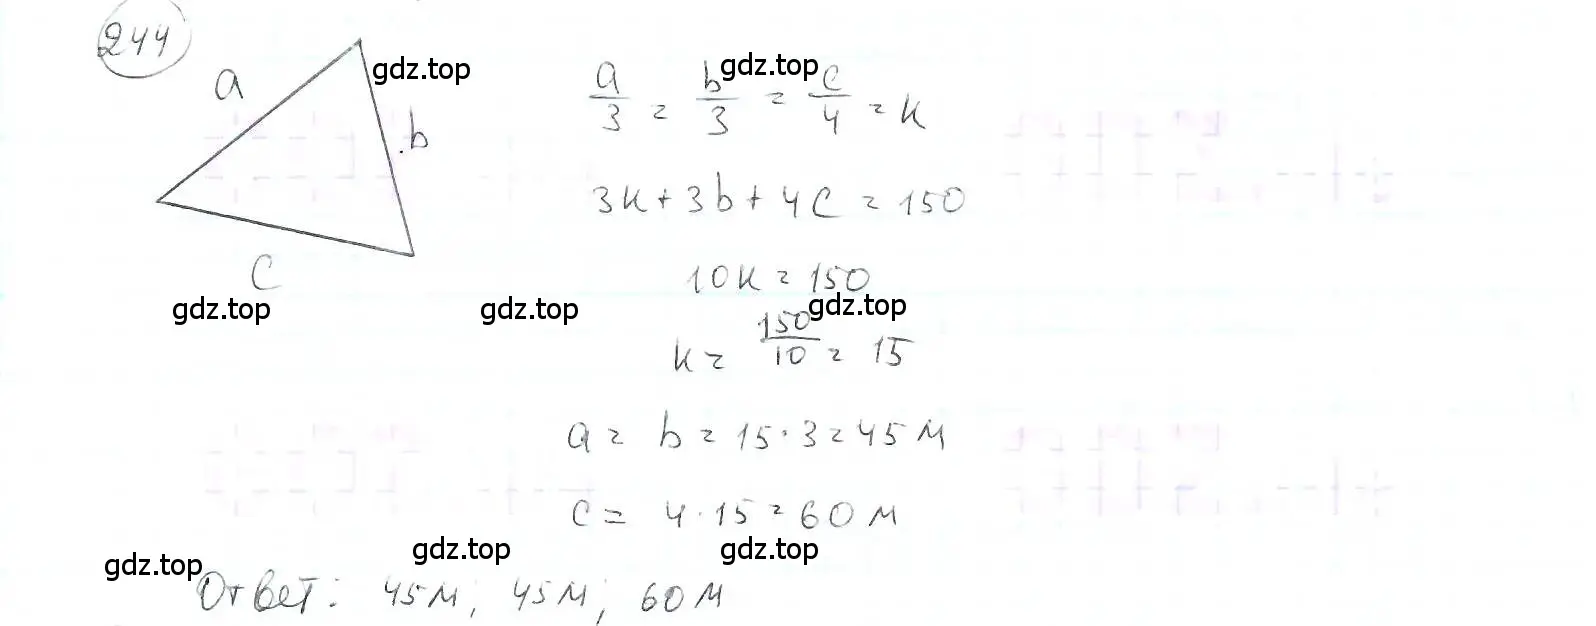 244
gdz.top
a
b
c
gdz.top
gdz.top
a/3 = b/3 = c/4 = k
gdz.top
3k + 3b + 4c = 150
10k = 150
gdz.top
k = 150/10 = 15
a = b = 15 · 3 = 45 м
c = 4 · 15 = 60 м
gdz.top
gdz.top
gdz.top
Ответ: 45 м; 45 м; 60 м